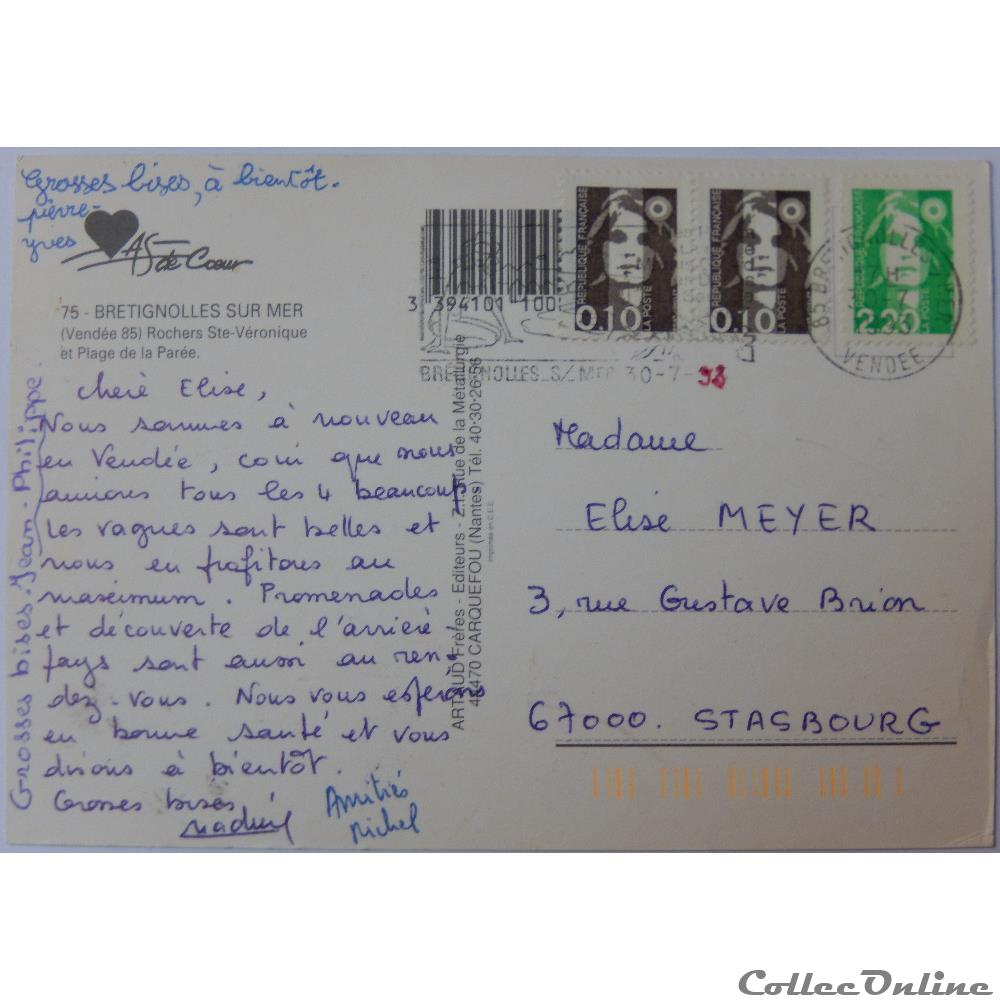 Grosses bises, à bientôt.
pierre-
yves
AS de Cœur
75 - BRETIGNOLLES SUR MER
(Vendée 85) Rochers Ste-Véronique
et Plage de la Parée.
Chère Elise,
Nous sommes à nouveau
en Vendée, coin que nous
aimons tous les 4 beaucoup.
Les vagues sont belles et
nous en profitons au
maximum. Promenades
et découverte de l'arrière
pays sont aussi au ren-
dez-vous. Nous vous espérons
en bonne santé et vous
disons à bientôt.
Grosses bises
Amitiés
Michel
Grosses bises. Jean-Philippe.
3 394101 100
ARTAUD Frères - Editeurs - Z.I. rue de la Métallurgie
44470 CARQUEFOU (Nantes) Tél. 40-30-26-56
Imprimée en C.E.E.
REPUBLIQUE FRANÇAISE
0.10
LA POSTE
REPUBLIQUE FRANÇAISE
0.10
LA POSTE
2.20
VENDEE
BRETIGNOLLES S/ MER 30-7-93
Madame
Elise MEYER
3, rue Gustave Brion
67000. STASBOURG
CollecOnline